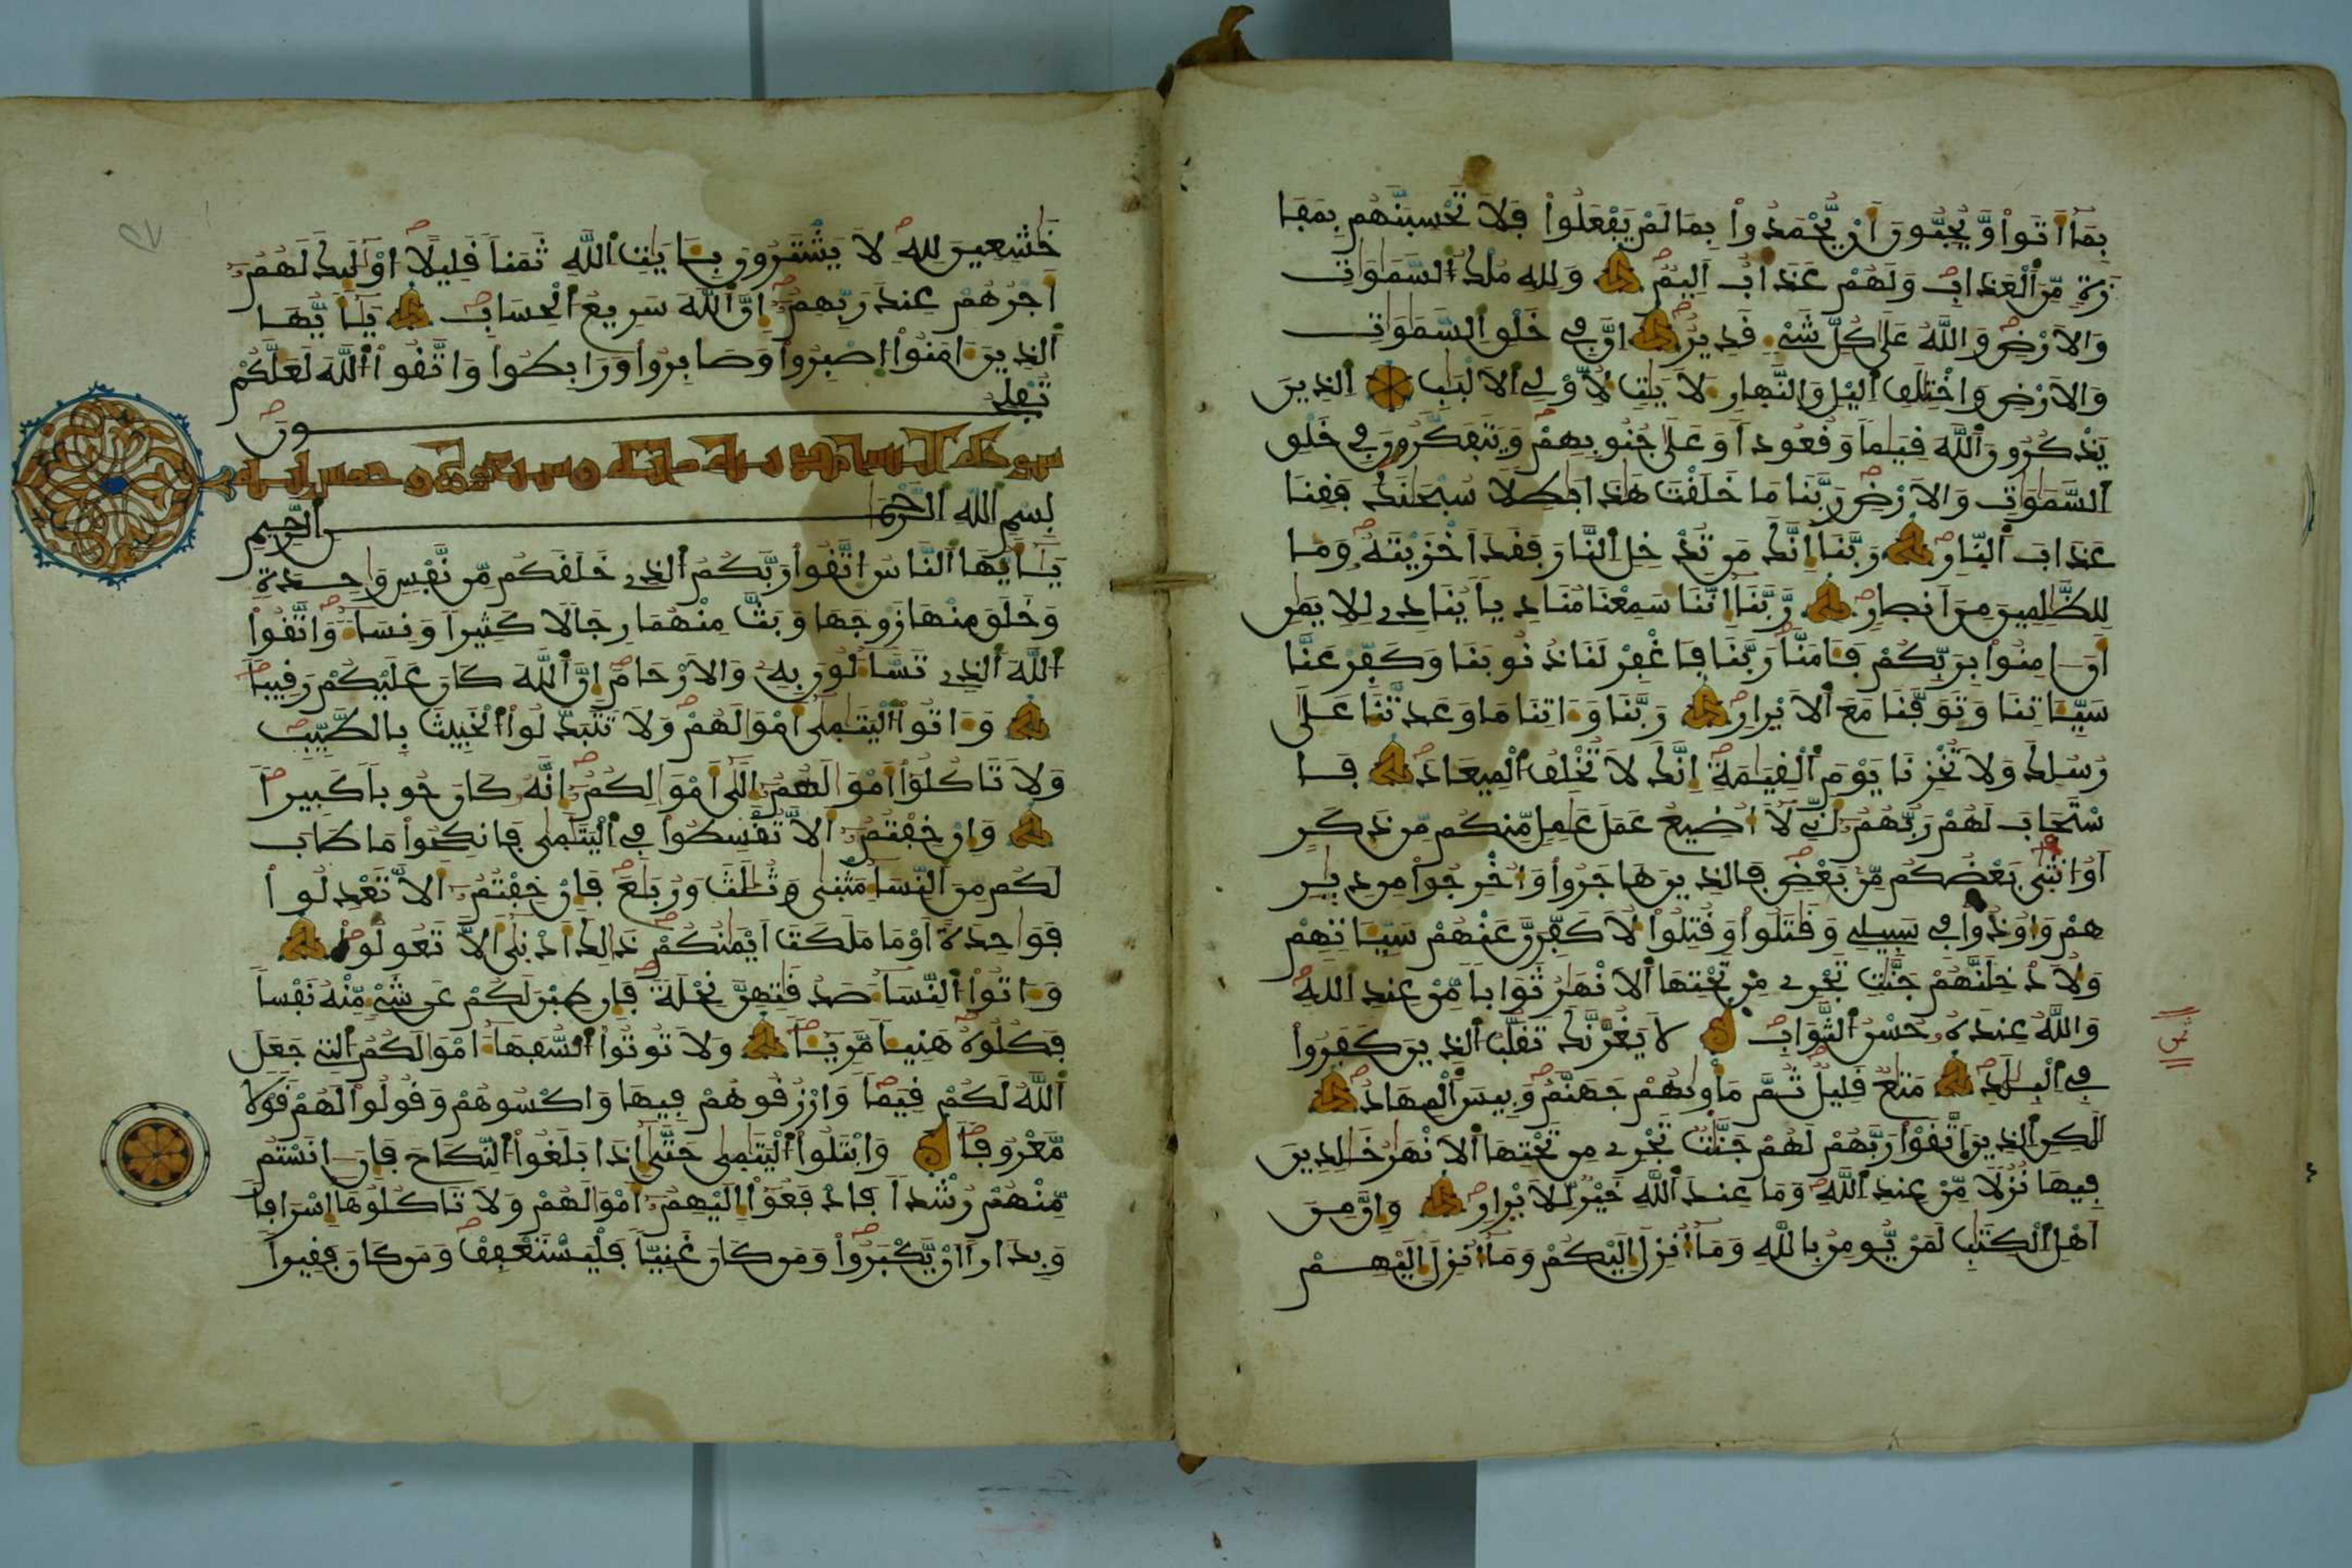 بِمَا أَتَوا۟ وَّيُحِبُّونَ أَنْ يُّحْمَدُوا۟ بِمَا لَمْ يَفْعَلُوا۟ فَلَا تَحْسِبَنَّهُم بِمَفَا
زَةٍ مِّنَ ٱلْعَذَابِ وَلَهُمْ عَذَابٌ اَلِيمٌ وَلِلهِ مُلْكُ ٱلسَّمَٰوَٰتِ
وَالَارْضِ وَاللَّهُ عَلَىٰ كُلِّ شَيْءٍ قَدِيرٌ اِنَّ فِي خَلْقِ اِلسَّمَٰوَٰتِ
وَالَارْضِ وَاخْتِلَٰفِ اِليْلِ وَالنَّهِارِ ءَلَايَٰتٍ لِّأُوْلِي اِلَالْبَٰبِ اِلذِينَ
يَذْكُرُونَ ٱللَّهَ قِيَٰماً وَقُعُوداً وَعَلَىٰ جُنُوبِهِمْ وَيَتَفَكَّرُونَ فِي خَلْقِ
اِلسَّمَٰوَٰتِ وَالَارْضِ رَبَّنَا مَا خَلَقْتَ هَٰذَا بَٰطِلًا سُبْحَٰنَكَ فَقِنَا
عَذَابَ اَلنّ۪ارِ رَبَّنَا إِنَّكَ مَن تُدْخِلِ اِلنَّارَ فَقَدَ اَخْزَيْتَهُۥ وَمَا
لِلظَّٰلِمِينَ مِنَ اَنص۪ارٍ رَّبَّنَا إِنَّنَا سَمِعْنَا مُنَادِياً يُنَادِے لِلِايمَٰنِ
أَنَ اٰمِنُوا۟ بِرَبِّكُمْ فَـَٔامَنَّا رَبَّنَا فَاغْفِرْ لَنَا ذُنُوبَنَا وَكَفِّرْ عَنَّا
سَيِّـَٔاتِنَا وَتَوَفَّنَا مَعَ اَلَابْر۪ارِ رَبَّنَا وَءَاتِنَا مَا وَعَدتَّنَا عَلَىٰ
رُسُلِكَ وَلَا تُخْزِنَا يَوْمَ اَلْقِيَٰمَةِ إِنَّكَ لَا تُخْلِفُ اُلْمِيعَادَ فَا
سْتَجَابَ لَهُمْ رَبُّهُمُۥ أَنِّي لَا أُضِيعُ عَمَلَ عَٰمِلٍ مِّنكُم مِّن ذَكَرٍ
اَوُ ا۟نثَىٰ بَعْضُكُم مِّنۢ بَعْضٍ فَالذِينَ هَاجَرُوا۟ وَأُخْرِجُوا۟ مِن دِيٰ۪رِ
هِمْ وَأُوذُوا۟ فِي سَبِيلِي وَقَٰتَلُوا۟ وَقُتِلُوا۟ لَأُكَفِّرَنَّ عَنْهُمْ سَيِّـَٔاتِهِمْ
وَلَأُدْخِلَنَّهُمْ جَنَّٰتٍ تَجْرِے مِن تَحْتِهَا اَلَانْهَٰرُ ثَوَاباً مِّنْ عِندِ اِللَّهِ
وَاللَّهُ عِندَهُۥ حُسْنُ اُلثَّوَابِ لَا يَغُرَّنَّكَ تَقَلُّبُ الذِينَ كَفَرُوا۟
فِي اِلْبِلَٰدِ مَتَٰعٌ قَلِيلٌ ثُمَّ مَأْوَىٰهُمْ جَهَنَّمُ وَبِيسَ اَلْمِهَادُ
لَٰكِنِ اِلذِينَ اَتَّقَوْا۟ رَبَّهُمْ لَهُمْ جَنَّٰتٌ تَجْرِے مِن تَحْتِهَا اَلَانْهَٰرُ خَٰلِدِينَ
فِيهَا نُزُلًا مِّنْ عِندِ اِللَّهِ وَمَا عِندَ اَللَّهِ خَيْرٌ لِّلَابْر۪ارِ وَإِنَّ مِنَ
اَهْلِ اِلْكِتَٰبِ لَمَنْ يُّومِنُ بِاللَّهِ وَمَا أُنزِلَ إِلَيْكُمْ وَمَا أُنزِلَ إِلَيْهِمْ
خَٰشِعِينَ لِلهِ لَا يَشْتَرُونَ بِـَٔايَٰتِ اِللَّهِ ثَمَناً قَلِيلًا اُوْلَٰئِكَ لَهُمُۥ
أَجْرُهُمْ عِندَ رَبِّهِمُۥ إِنَّ اَللَّهَ سَرِيعُ اُلْحِسَابِ يَٰأَيُّهَا
اَلذِينَ ءَامَنُوا۟ اُصْبِرُوا۟ وَصَابِرُوا۟ وَرَابِطُوا۟ وَاتَّقُوا۟ اُللَّهَ لَعَلَّكُمْ
تُفْلِحُونَ
سورة النساء مدنية مائة وسبعون وخمس ءاية
بِسْمِ اللَّهِ الرَّحْمَٰنِ الرَّحِيمِ
يَٰأَيُّهَا اَلنَّاسُ اُتَّقُوا۟ رَبَّكُمُ اُلذِے خَلَقَكُم مِّن نَّفْسٍ وَٰحِدَةٍ
وَخَلَقَ مِنْهَا زَوْجَهَا وَبَثَّ مِنْهُمَا رِجَالًا كَثِيراً وَنِسَاءً وَاتَّقُوا۟
اُللَّهَ اَلذِے تَسَّاءَلُونَ بِهِۦ وَالَارْحَامَ إِنَّ اَللَّهَ كَانَ عَلَيْكُمْ رَقِيباً
وَءَاتُوا۟ اُلْيَتَٰمَىٰ أَمْوَٰلَهُمْ وَلَا تَتَبَدَّلُوا۟ اُلْخَبِيثَ بِالطَّيِّبِ
وَلَا تَاكُلُوا۟ أَمْوَٰلَهُمُۥ إِلَىٰ أَمْوَٰلِكُمُۥ إِنَّهُۥ كَانَ حُوباً كَبِيراً
وَإِنْ خِفْتُمُۥ أَلَّا تُقْسِطُوا۟ فِي اِلْيَتَٰمَىٰ فَانكِحُوا۟ مَا طَابَ
لَكُم مِنَ اَلنِّسَاءِ مَثْنَىٰ وَثُلَٰثَ وَرُبَٰعَ فَإِنْ خِفْتُمُۥ أَلَّا تَعْدِلُوا۟
فَوَٰحِدَةً اَوْ مَا مَلَكَتَ اَيْمَٰنُكُمْ ذَٰلِكَ أَدْنَىٰ أَلَّا تَعُولُوا۟
وَءَاتُوا۟ اُلنِّسَاءَ صَدُقَٰتِهِنَّ نِحْلَةً فَإِن طِبْنَ لَكُمْ عَن شَيْءٍ مِّنْهُ نَفْساً
فَكُلُوهُ هَنِيـٔاً مَّرِيـٔاً وَلَا تُوتُوا۟ اُلسُّفَهَاءَ امْوَٰلَكُمُ اُلتِي جَعَلَ
اَللَّهُ لَكُمْ قِيَماً وَارْزُقُوهُمْ فِيهَا وَاكْسُوهُمْ وَقُولُوا۟ لَهُمْ قَوْلًا
مَّعْرُوفاً وَابْتَلُوا۟ اُلْيَتَٰمَىٰ حَتَّىٰ إِذَا بَلَغُوا۟ اُلنِّكَاحَ فَإِنَ اٰنَسْتُم
مِّنْهُمْ رُشْداً فَادْفَعُوا۟ إِلَيْهِمُۥ أَمْوَٰلَهُمْ وَلَا تَاكُلُوهَا إِسْرَافاً
وَبِدَاراً أَنْ يَّكْبَرُوا۟ وَمَن كَانَ غَنِيّاً فَلْيَسْتَعْفِفْ وَمَن كَانَ فَقِيراً